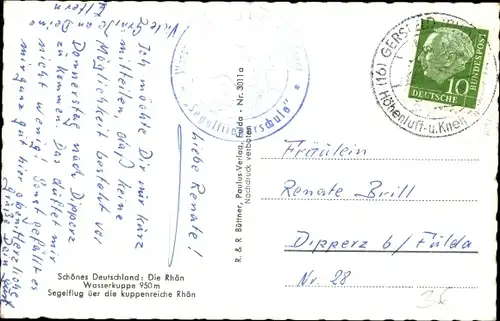 Liebe Renate!
Ich möchte Dir nur kurz
mitteilen, daß keine
Möglichkeit besteht vor
Donnerstag nach Dipperz
zu kommen. Du
nicht wenig! Sonst gefällt es
mir ganz gut hier oben. Herzliche
Grüße Dein
Viele Grüße an Deine
Eltern
Schönes Deutschland: Die Rhön
Wasserkuppe 950 m
Segelflug üer die kuppenreiche Rhön
R. & R. Büttner, Paulus-Verlag, Fulda - Nr. 3011a
Nachdruck verboten
"Segelfliegerschule"
(16) GERSFELD
Höhenluft-u.Kneipp
10
DEUTSCHE
BUNDESPOST
Fräulein
Renate Brill
Dipperz b/ Fulda
Nr. 28